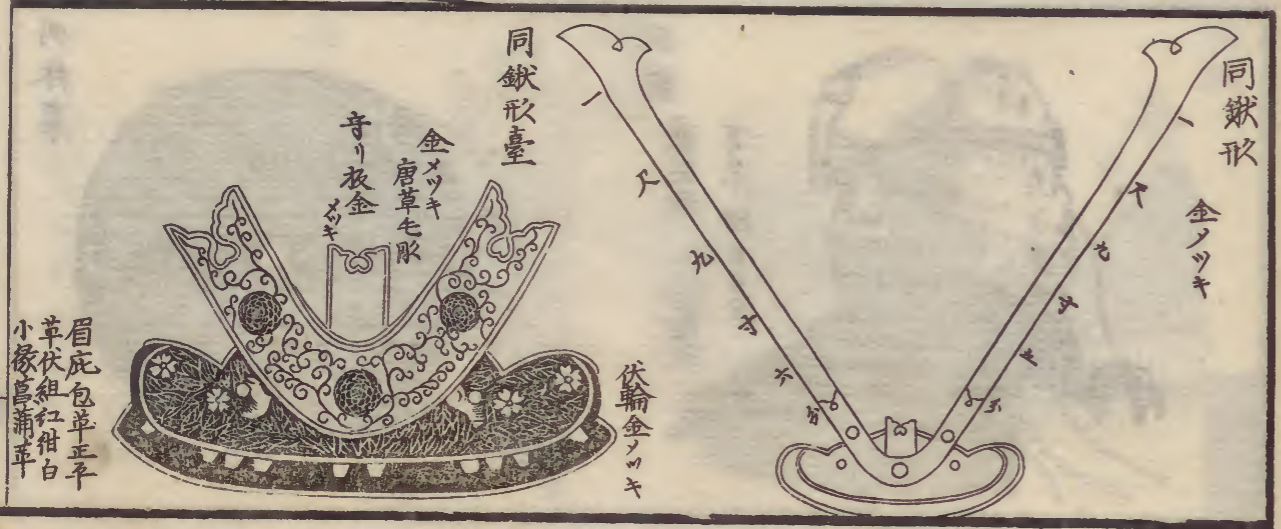 同鍬形
金メツキ
一尺九寸六分
同鍬形臺
金メツキ
唐草毛彫
守リ板金
メツキ
伏輪金メツキ
眉庇包革正平
革伏組紅紺白
小縁菖蒲革